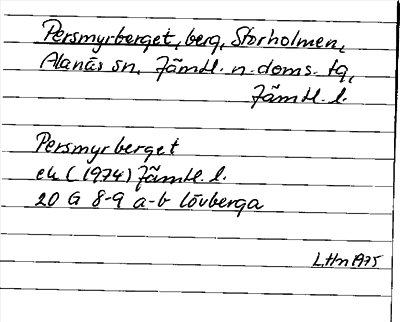 Persmyrberget, berg, Storholmen,
Alanäs sn. Jämtl. n. doms. tg,
Jämtl. l.
Persmyrberget
ek (1974) Jämtl. l.
20 G 8-9 a-b Lövberga
L.Hn 1975